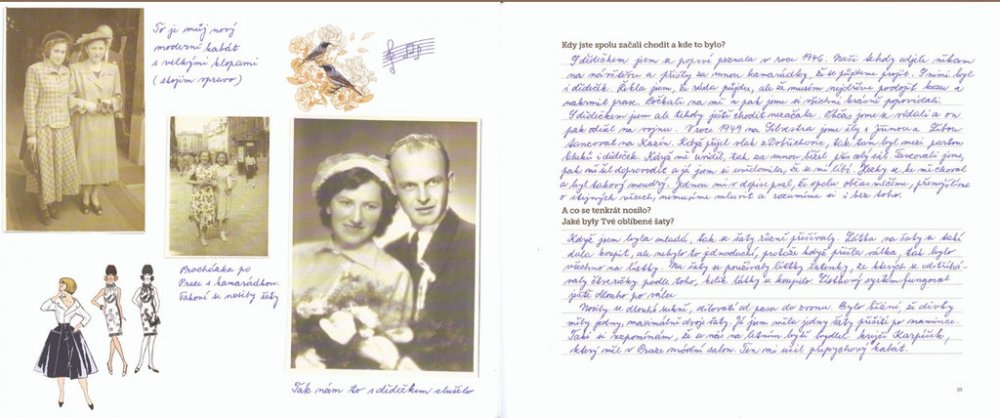 To je můj nový
moderní kabát
s velkými klopami
(stojím vpravo)
Procházka po
Praze s kamarádkou.
Takové se nosily šaty
Tak nám to s dědečkem slušelo
Kdy jste spolu začali chodit a kde to bylo?
S dědečkem jsem se poprvé poznala v roce 1946. Naši tehdy odjeli někam
na návštěvu a přišly za mnou kamarádky, že se půjdeme projít. S nimi byl
i dědeček. Řekla jsem, že ráda půjdu, ale že musím nejdříve podojit kozu a
nakrmit prase. Počkali na mě a pak jsme si všichni krásně popovídali.
S dědečkem jsem ale tehdy ještě chodit nezačala. Občas jsme se viděli a on
pak odešel na vojnu. V roce 1949 na Silvestra jsme šly s Jiřinou a Libou
tancovat na Kazín. Když přijel vlak z Dobřichovic, tak tam byl mezi partou
kluků i dědeček. Když mě uviděl, tak za mnou běžel přes celý sál. Tancovali jsme,
pak mě šel doprovodit a já jsem si uvědomila, že se mi líbí. Hezky se ke mě choval
a byl takový moudrý. Jednou mi v dopise psal, že spolu občas mlčíme, přemýšlíme
o stejných věcech, nemusíme mluvit a rozumíme si i bez toho.
A co se tenkrát nosilo?
Jaké byly Tvé oblíbené šaty?
Když jsem byla mladá, tak se šaty různě přešívaly. Látka na šaty se také
dala koupit, ale nebylo to jednoduché, protože když přišla válka, tak bylo
všechno na lístky. Na šaty se používaly lístky šatenky, ze kterých se odstřihá-
valy čtverečky podle toho, kolik látky se koupilo. Lístkový systém fungoval
ještě dlouho po válce.
Nosily se dlouhé sukně, dílované od pasu do zvonu. Bylo běžné, že děvčata
měly jedny, maximálně dvoje šaty. Já jsem měla jedny šaty přešité po mamince.
Také si vzpomínám, že u nás na letním bytě bydlel krejčí Karpíšek,
který měl v Praze módní salon. Ten mi ušil přepychový kabát.
59